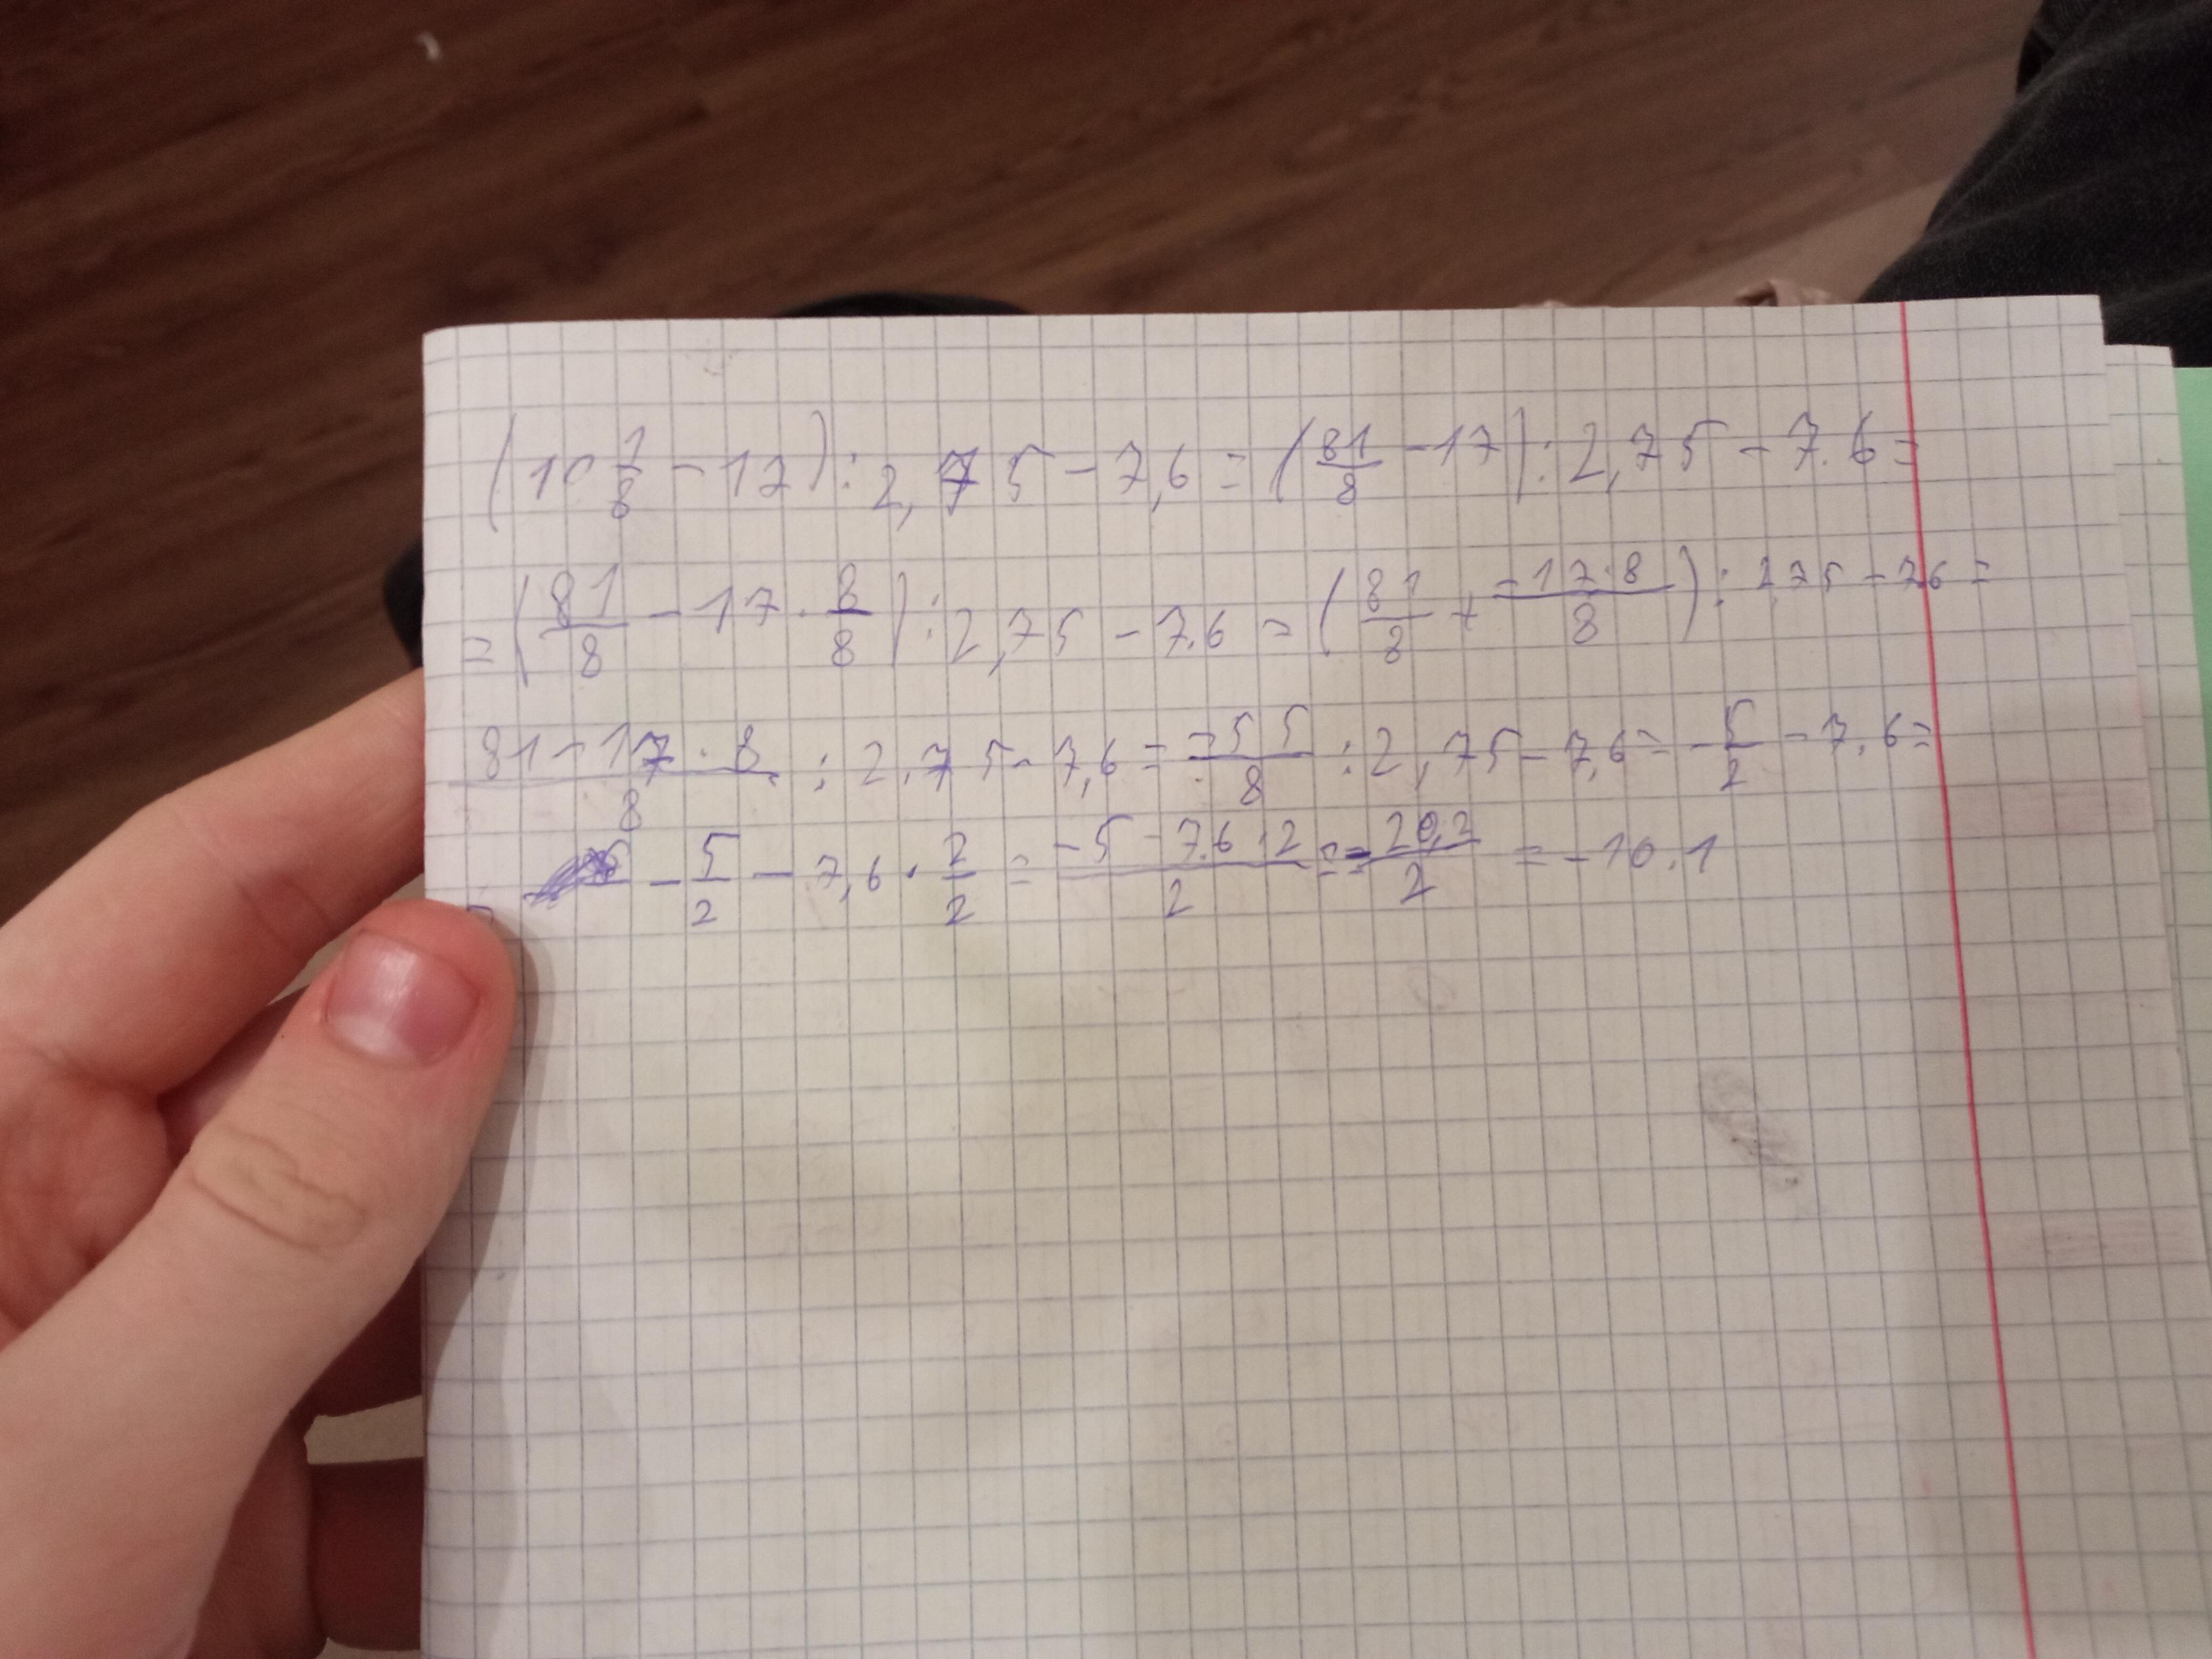 (10 1/8 - 17) : 2,75 - 7,6 = (81/8 - 17) : 2,75 - 7.6 =
= (81/8 - 17 · 8/8) : 2,75 - 7.6 = (81/8 + -17·8/8) : 2,75 - 7.6 =
81-17·8/8 : 2.75 - 7,6 = -55/8 : 2,75 - 7,6 = -5/2 - 7,6 =
-5/2 - 7,6 · 2/2 = -5-7.6·2/2 = -20,2/2 = -10.1